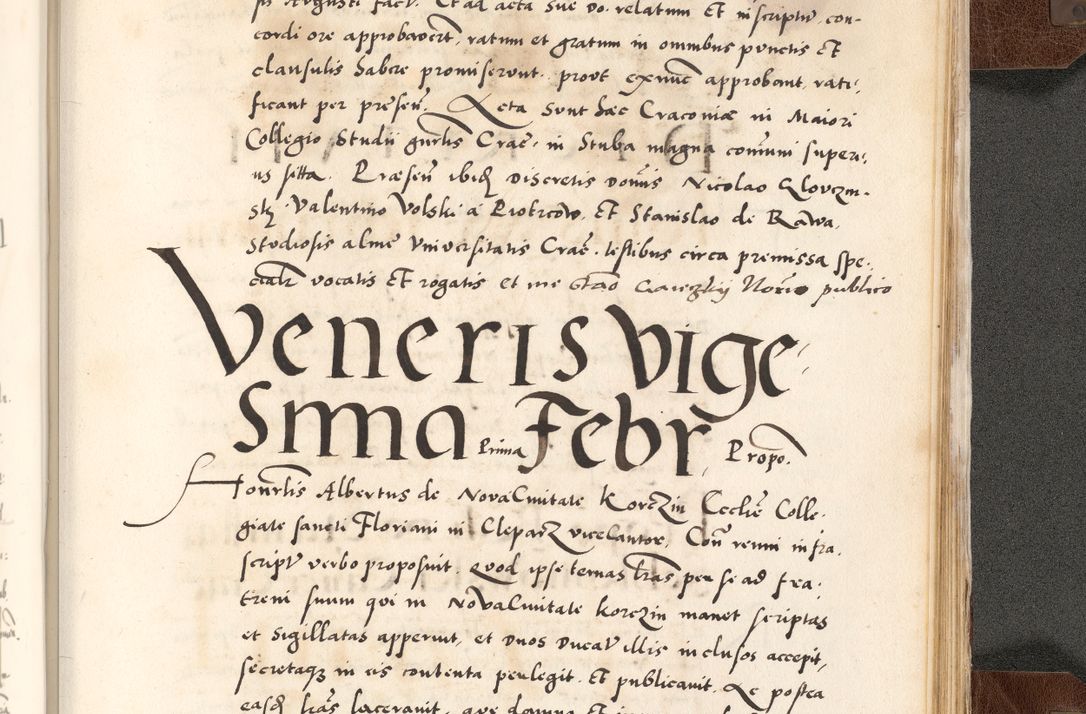 fusti fact. Et ad acta sue do. relatum Et in scriptu con-
cordi ore approbaverut, ratum et gratum in omnibus punctis Et
clausulis habere promiserunt. prout exnuc approbant, rati,
ficant per presen. Acta sunt haec Cracoviae in Maiori
Collegio Studii gnrlis Crac. in Stuba magna comuni superi,
us sitta. Praesen ibid Discretis Domis Nicolao
sky Valentino Volski a Piotrcow, Et Stanislao de Rawa,
Studiosis alme Universitatis Crac. testibus circa premissa spe,
cialr vocatis Et rogatis et me Stao Notrio publico
Veneris Vige
sima Prima Febr, Propo.
Honrlis Albertus de Nova Civitate Korczin Ecclie Colle,
giate sancti Floriani in Cleparz vice Cantor, Con reuni infra,
script verbo proposuit. Quod ipse ternas lras per se ad fra,
trem suum qui in Nova Civitate Korczin manet scriptas
et sigillatas apperuit, et Duos Ducat illis inclusos accepit,
secretaque in eis contenta perlegit Et publicavit. Ac postea
easd lras laceravit, que damna Et